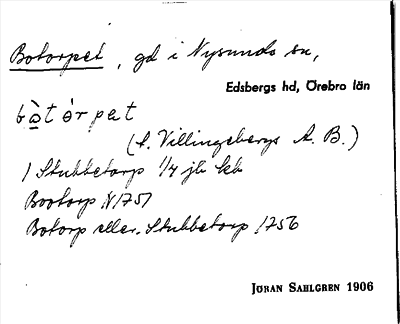 Botorpet, gd i Nysunds sn,
Edsbergs hd, Örebro län
bòtòrpet
(t. Villingsbergs A. B.)
1 Stubbetorp 1/4 jb kb
Bootorp N 1751
Botorp eller Stubbetorp 1756
JØRAN SAHLGREN 1906